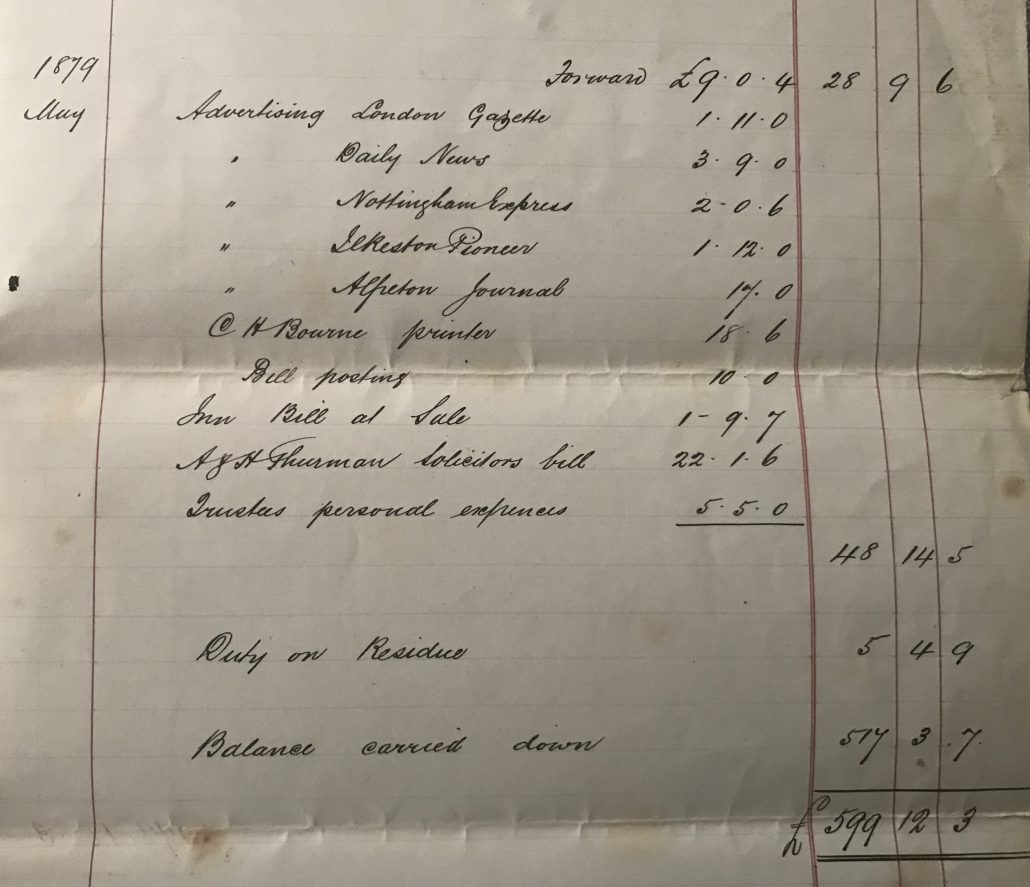 1879 Forward £9.0.4 28 9 6
May Advertising London Gazette 1.11.0
" Daily News 3.9.0
" Nottingham Express 2-0.6
" Ilkeston Pioneer 1.12.0
" Alfreton Journal 17.0
C H Bourne printer 18.6
Bill posting 10.0
Inn Bill at Sale 1-9.7
A & H Thurman Solicitors bill 22.1.6
Trustees personal expences 5.5.0
48 14 5
Duty on Residue 5 4 9
Balance carried down 517 3.7.
£599 12 3